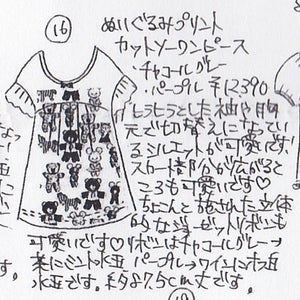 16
ぬいぐるみプリント
カットソーワンピース
・チャコールグレー
・パープル ¥12390
ヒラヒラとした袖や胸
元で切替えになってい
るシルエットが可愛いです!
スカート部分が広がると
ころも可愛いです♡
ちょこんと施された立体
的な リボンも
可愛いです♡リボンはチャコールグレー→
茶にミント水玉 パープル→ワインにボス玉
水玉です。約87.5cm丈です。